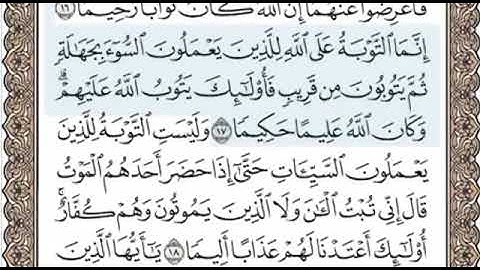 فَأَعْرِضُوا۟ عَنْهُمَآ إِنَّ ٱللَّهَ كَانَ تَوَّابًا رَّحِيمًا ١٦
إِنَّمَا ٱلتَّوْبَةُ عَلَى ٱللَّهِ لِلَّذِينَ يَعْمَلُونَ ٱلسُّوٓءَ بِجَهَٰلَةٍ
ثُمَّ يَتُوبُونَ مِن قَرِيبٍ فَأُو۟لَٰٓئِكَ يَتُوبُ ٱللَّهُ عَلَيْهِمْ ۗ
وَكَانَ ٱللَّهُ عَلِيمًا حَكِيمًا ١٧ وَلَيْسَتِ ٱلتَّوْبَةُ لِلَّذِينَ
يَعْمَلُونَ ٱلسَّيِّـَٔاتِ حَتَّىٰٓ إِذَا حَضَرَ أَحَدَهُمُ ٱلْمَوْتُ
قَالَ إِنِّى تُبْتُ ٱلْـَٰٔنَ وَلَا ٱلَّذِينَ يَمُوتُونَ وَهُمْ كُفَّارٌ ۚ
أُو۟لَٰٓئِكَ أَعْتَدْنَا لَهُمْ عَذَابًا أَلِيمًا ١٨ يَٰٓأَيُّهَا ٱلَّذِينَ